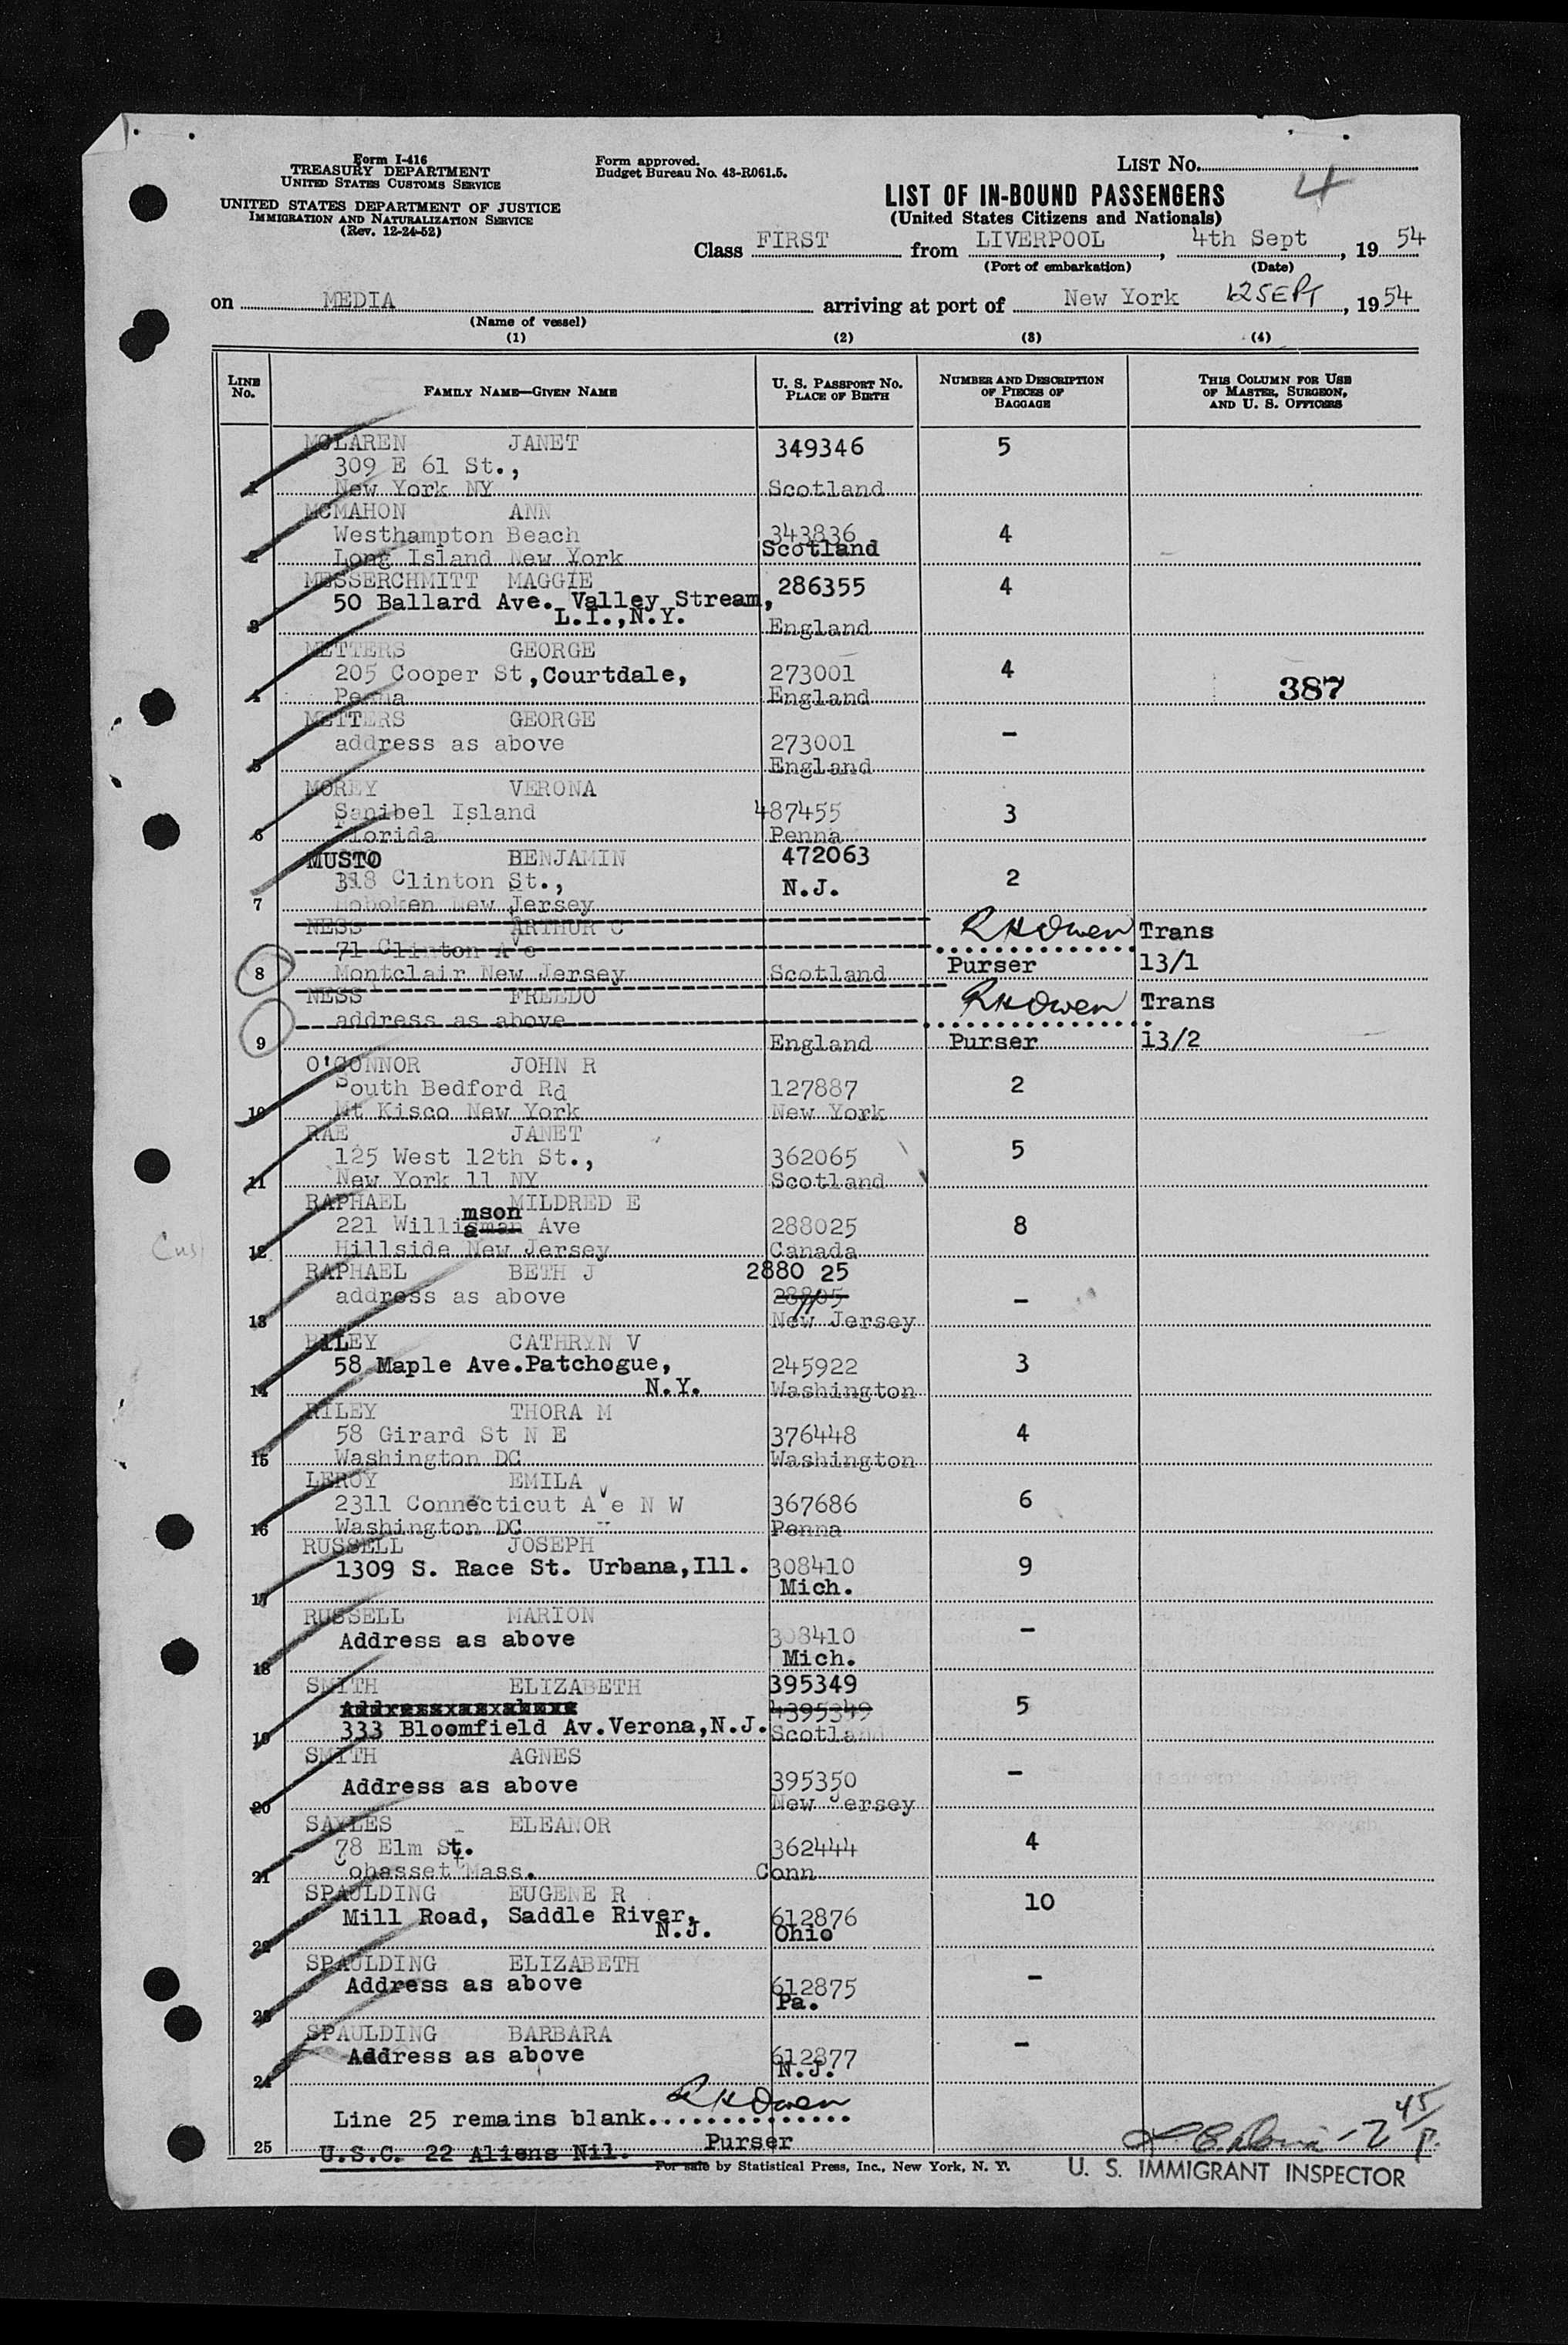 Form I-416
TREASURY DEPARTMENT
UNITED STATES CUSTOMS SERVICE
UNITED STATES DEPARTMENT OF JUSTICE
IMMIGRATION AND NATURALIZATION SERVICE
(Rev. 12-24-52)
Form approved.
Budget Bureau No. 43-R061.5.
LIST No.
4
LIST OF IN-BOUND PASSENGERS
(United States Citizens and Nationals)
Class FIRST from LIVERPOOL, 4th Sept, 19 54
(Port of embarkation) (Date)
on MEDIA arriving at port of New York 12 SEPT, 19 54
(Name of vessel)
(1) (2) (3) (4)
LINE No. FAMILY NAME—GIVEN NAME U. S. PASSPORT No. PLACE OF BIRTH NUMBER AND DESCRIPTION OF PIECES OF BAGGAGE THIS COLUMN FOR USE OF MASTER, SURGEON, AND U. S. OFFICERS
MCLAREN JANET 349346 5
309 E 61 St.,
1 New York NY Scotland
MCMAHON ANN
Westhampton Beach 343836 4
2 Long Island New York Scotland
MESSERCHMITT MAGGIE 286355 4
50 Ballard Ave. Valley Stream,
L.I.,N.Y.
3 England
METTERS GEORGE
205 Cooper St,Courtdale, 273001 4
4 Penna England 387
METTERS GEORGE
address as above 273001 -
5 England
MOREY VERONA
Sanibel Island 487455 3
6 Florida Penna
MUSTO BENJAMIN 472063
318 Clinton St., N.J. 2
7 Hoboken New Jersey
NESS ARTHUR C RHOwen Trans
71 Clinton Ave
8 Montclair New Jersey Scotland Purser 13/1
NESS FREEDO RHOwen Trans
address as above
9 England Purser 13/2
O'CONNOR JOHN R
South Bedford Rd 127887 2
10 Mt Kisco New York New York
RAE JANET
125 West 12th St., 362065 5
11 New York 11 NY Scotland
RAPHAEL MILDRED E
mson
221 Willisman Ave 288025 8
a
12 Hillside New Jersey Canada
RAPHAEL BETH J 2880 25
address as above 28805 -
13 New Jersey
RILEY CATHRYN V
58 Maple Ave.Patchogue, 245922 3
14 N.Y. Washington
RILEY THORA M
58 Girard St N E 376448 4
15 Washington DC Washington
LEROY EMILA
2311 Connecticut Ave N W 367686 6
16 Washington DC Penna
RUSSELL JOSEPH
1309 S. Race St. Urbana,Ill. 308410 9
17 Mich.
RUSSELL MARION
Address as above 308410 -
18 Mich.
SMITH ELIZABETH 395349
Addressxasxabove 4395349 5
19 333 Bloomfield Av.Verona,N.J. Scotland
SMITH AGNES
Address as above 395350 -
20 New Jersey
SAYLES ELEANOR
78 Elm St. 362444 4
21 Cohasset Mass. Conn
SPAULDING EUGENE R 10
Mill Road, Saddle River, 612876
N.J. Ohio
22
SPAULDING ELIZABETH
Address as above 612875 -
23 Pa.
SPAULDING BARBARA
Address as above 612877 -
24 N.J.
RHOwen
Line 25 remains blank...............
25 Purser
U.S.C. 22 Aliens Nil.
For sale by Statistical Press, Inc., New York, N. Y.
U. S. IMMIGRANT INSPECTOR